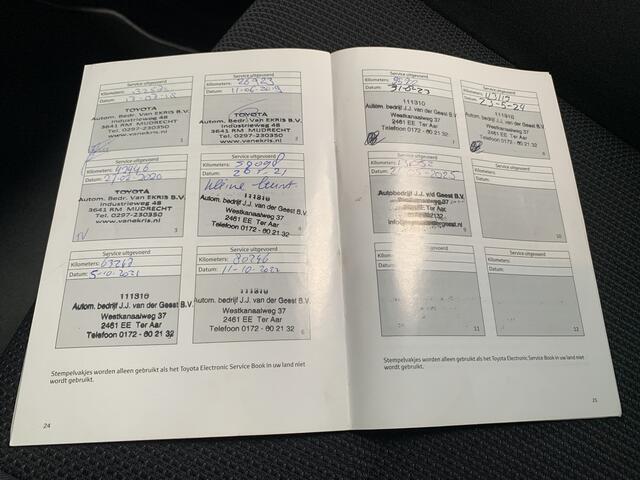 Service uitgevoerd
Kilometers:
Datum:
TOYOTA
Autom. Bedr. Van EKRIS B.V.
Industrieweg 48
3641 RM MIJDRECHT
Tel. 0297-230350
www.vanekris.nl
1
Service uitgevoerd
Kilometers: 26923
Datum: 11-06-2019
TOYOTA
Autom. Bedr. Van EKRIS B.V.
Industrieweg 48
3641 RM MIJDRECHT
Tel. 0297-230350
www.vanekris.nl
2
Service uitgevoerd
Kilometers: 47446
Datum:
TOYOTA
Autom. Bedr. Van EKRIS B.V.
Industrieweg 48
3641 RM MIJDRECHT
Tel. 0297-230350
www.vanekris.nl
3
Service uitgevoerd
Kilometers:
Datum:
kleine beurt.
111310
Autom. bedrijf J.J. van der Geest B.V.
Westkanaalweg 37
2461 EE Ter Aar
Telefoon 0172 - 60 21 32
Service uitgevoerd
Kilometers: 63263
Datum: 5-10-2021
111310
Autom. bedrijf J.J. van der Geest B.V.
Westkanaalweg 37
2461 EE Ter Aar
Telefoon 0172 - 60 21 32
Service uitgevoerd
Kilometers: 80246
Datum: 11-10-2022
111310
Autom. bedrijf J.J. van der Geest B.V.
Westkanaalweg 37
2461 EE Ter Aar
Telefoon 0172 - 60 21 32
6
Stempelvakjes worden alleen gebruikt als het Toyota Electronic Service Book in uw land niet
wordt gebruikt.
24
Service uitgevoerd
Kilometers:
Datum:
111310
Autom. bedrijf J.J. van der Geest B.V.
Westkanaalweg 37
2461 EE Ter Aar
Telefoon 0172 - 60 21 32
7
Service uitgevoerd
Kilometers:
Datum: 23-5-24
111310
Autom. bedrijf J.J. van der Geest B.V.
Westkanaalweg 37
2461 EE Ter Aar
Telefoon 0172 - 60 21 32
8
Service uitgevoerd
Kilometers:
Datum:
Autobedrijf J.J. v/d Geest B.V.
Westkanaalweg 37
Service uitgevoerd
Kilometers:
Datum:
10
Service uitgevoerd
Kilometers:
Datum:
11
Service uitgevoerd
Kilometers:
Datum:
12
Stempelvakjes worden alleen gebruikt als het Toyota Electronic Service Book in uw land niet
wordt gebruikt.
25